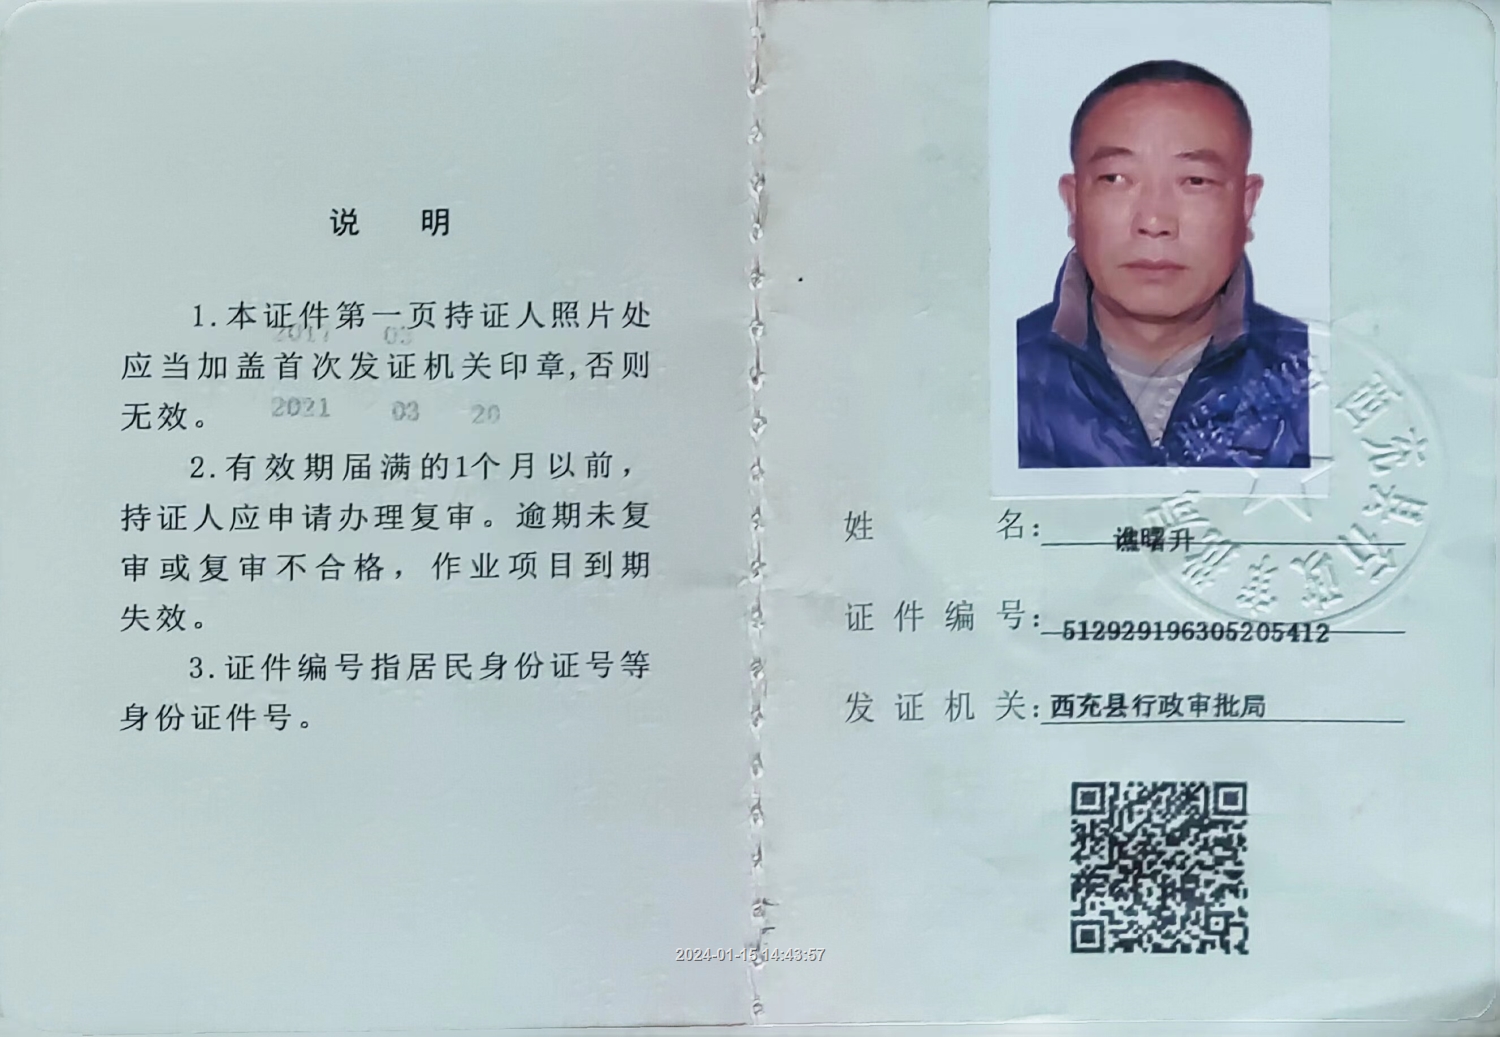 说 明
1.本证件第一页持证人照片处
2017 03
应当加盖首次发证机关印章,否则
无效。
2021 03 20
2.有效期届满的1个月以前，
持证人应申请办理复审。逾期未复
审或复审不合格，作业项目到期
失效。
3.证件编号指居民身份证号等
身份证件号。
姓 名: 谯曙升
证件编号: 512929196305205412
发证机关: 西充县行政审批局
西充县行政审批局
2024-01-15 14:43:57